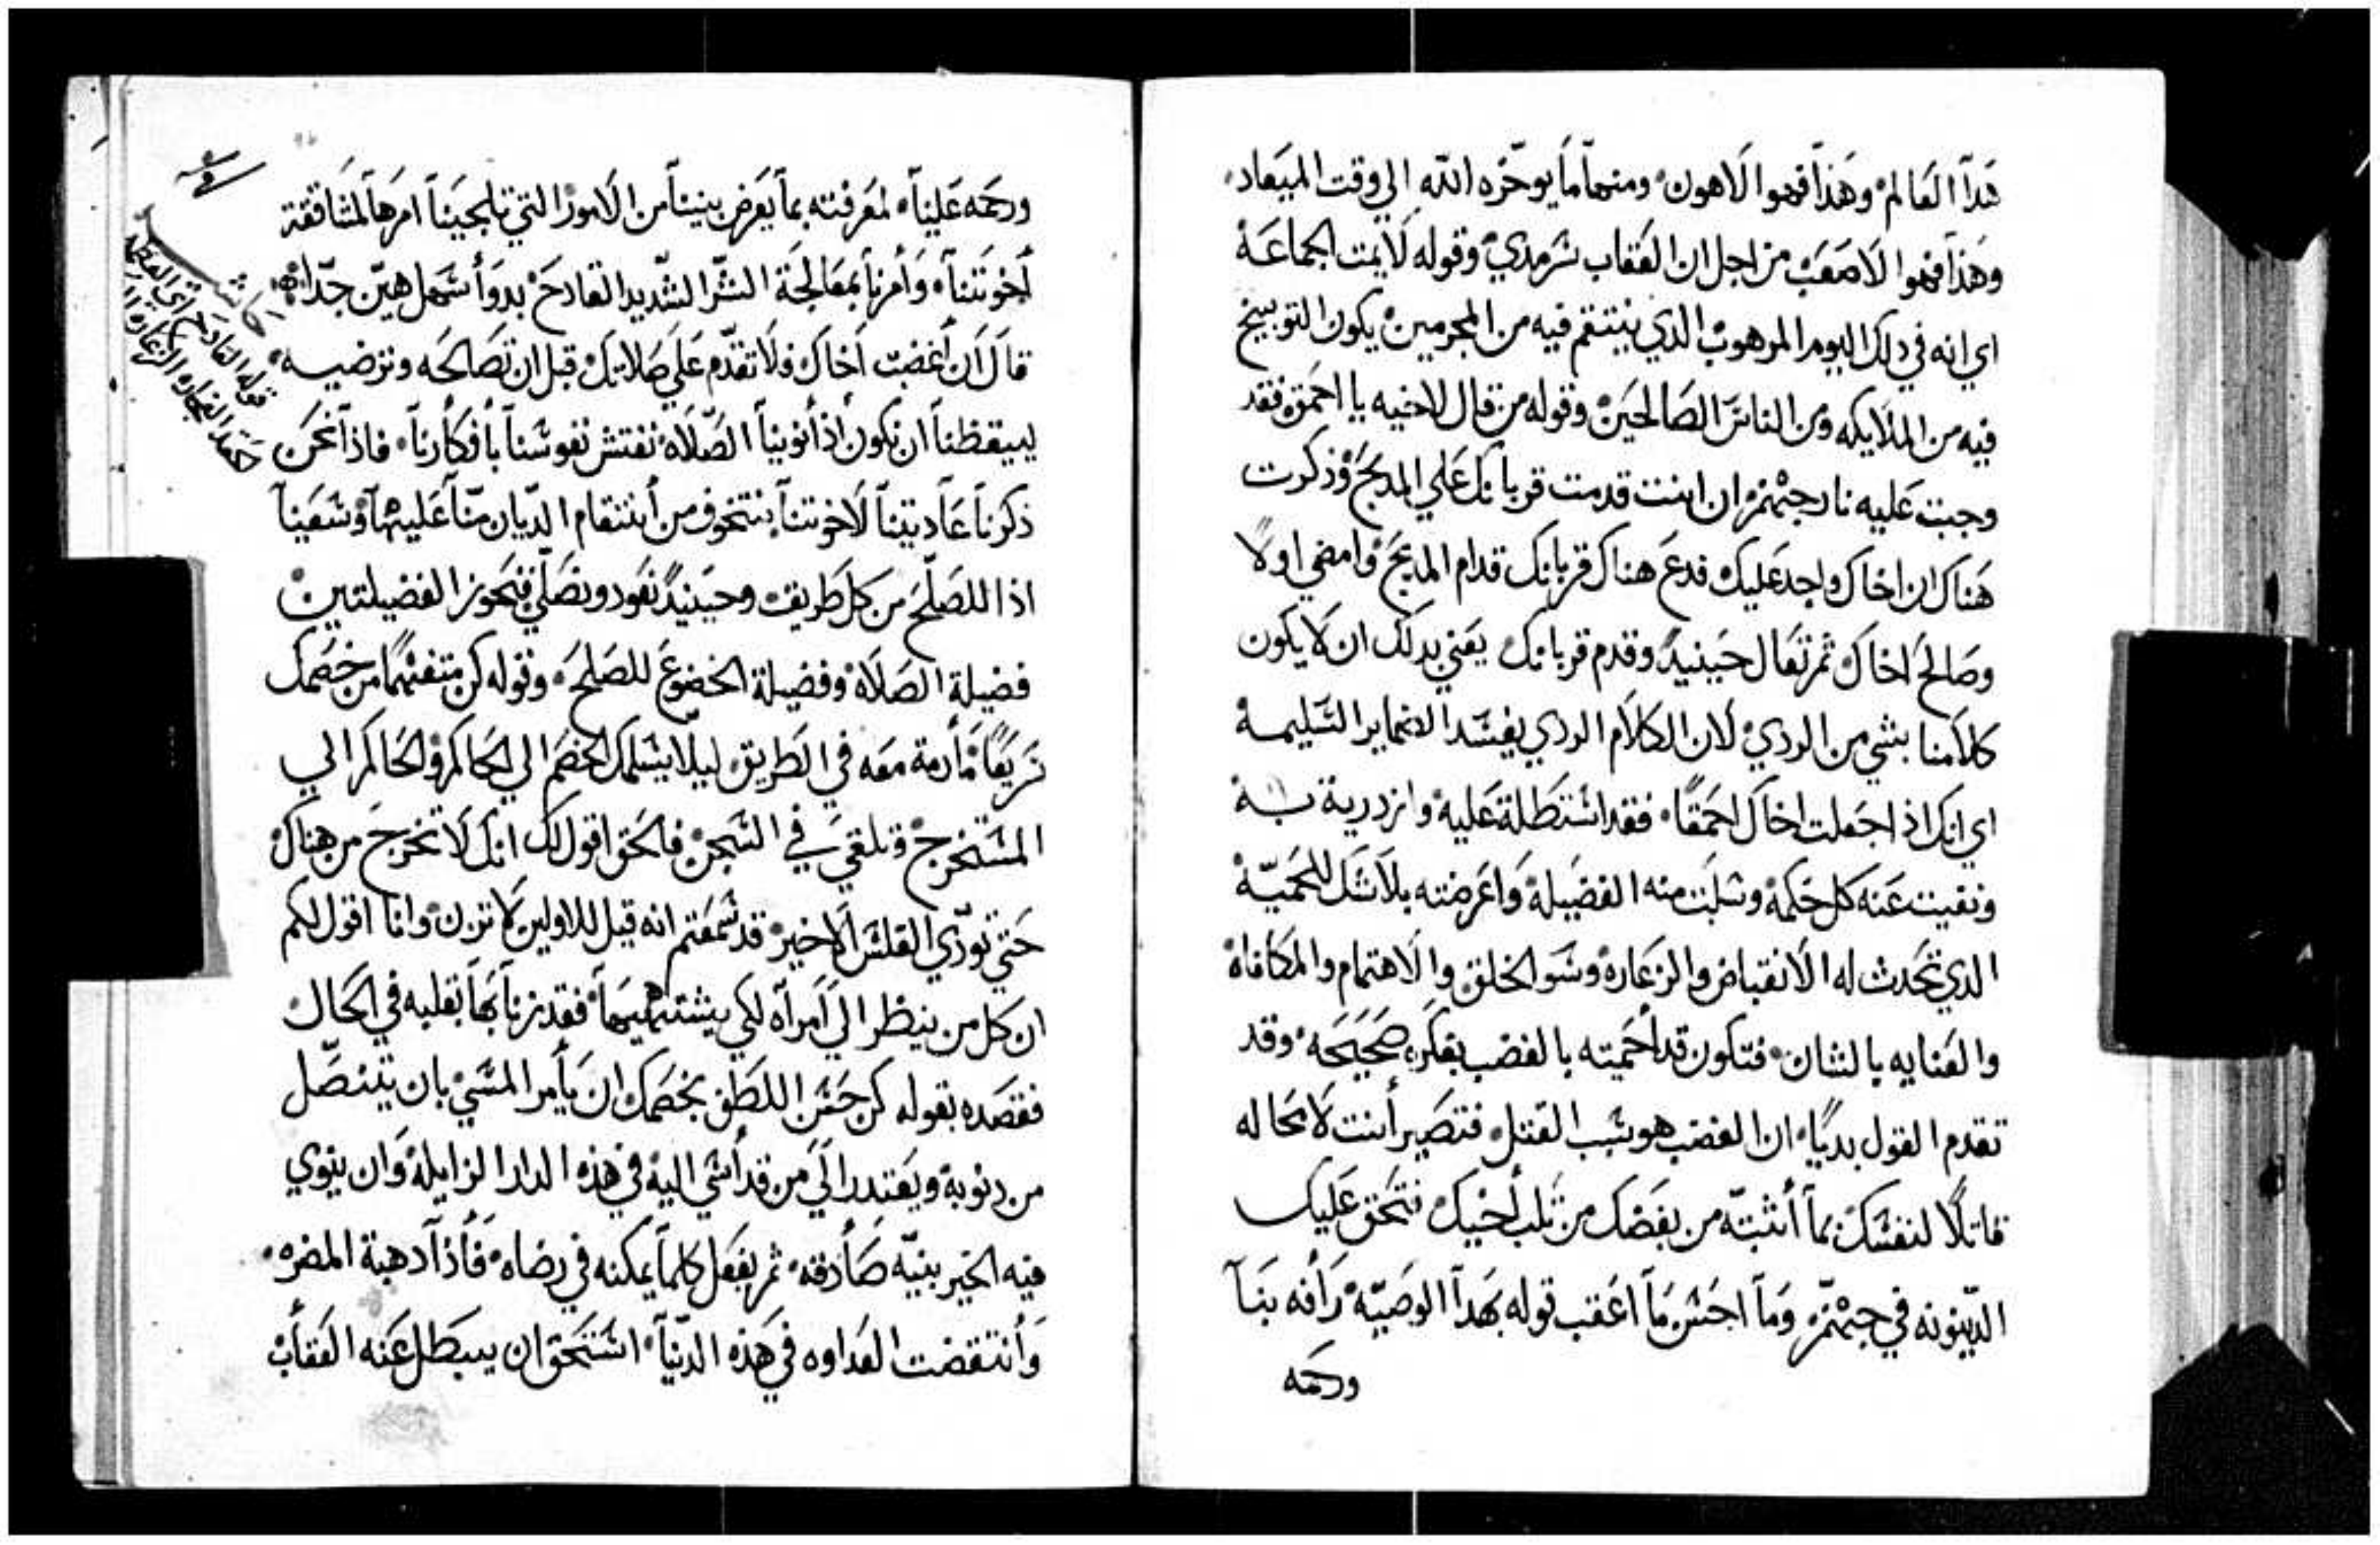 هَدآ العَالم وهَذآ فهوا الَاهون ومنهآ مآ يوخّره الله الي وقت الميَعاد
وهَذآ فهوا الَاصعَبْ من اجل ان العَقاب سَرمدي وقوله لَايمت الجماعَة
اي انه في دلك اليوم المرهوب الدي ينتقم فيه من المجرمين يكون التوبيخ
فيه من الملَايكه ومن الناسَ الصَالحَين وقوله من قال لاخيه يا احمَق فقد
وجبت عَليه نار جهنم ان انت قدمت قربانك عَلي المدبَح وذكرت
هَناك ان اخاك واجد عَليك فدعَ هناك قربانك قدام المدبحَ وامضي اولًا
وصَالحَ اخاك ثم تعَال حَينيدً وقدم قربانك يعَني بدلك ان لَا يكون
كلَامنا بشي من الردي لَان الكلَام الردي يفسَد الضماير السَليمة
اي انك اذ اجعَلت اخاك احمَقًا فقد اسَتطَلة عَليه وازدرية به
ونفيت عَنه كل حَكمة وسَلبت منه الفضيلة واعَرضته بلَا شَك للحَميّة
الدي تحَدث له الَانقباض والزعَارة وسَو الخلق والَاهتمام والمكافاة
والعَنايه بالشان فتكون قد أحَميته بالغضب بفكَره صَحَيحَه وقد
تقدم القول بديًا ان الغضب هو سَبب القتل فتصَير أنت لَا محَاله
قاتلًا لنفسَك بمآ أثبتّه من بغضَك من ثَلب أخيك فتحَق عَليك
الدّينونه في جهنّم ومآ احسَن مآ اعَقب قوله بهَدآ الوصَيّة رَأفه بنَآ
ورحمَه
ورحمَه عَلينآ لمعَرفته بمآ يعَرض بيننآ من الَامور التي تلجينآ امرهآ لمشاققة
أخوتنآ وَأمرنآ بمعَالجَة الشّر الشّديد الفادحَ بدوَأ سَهل هيّن جّدًا
قآل ان أغضبت أخاك فلَا تقدّم عَلي صَلَاتك قبل ان تصَالحَه وترضيه
ليبقظنآ ان نكون إذ أنوينآ الصّلَاة نفتش نفوسَنآ بأفكَارنآ فاذآ نحَن
ذكرنآ عَآديتنآ لَاخوتنآ نتخوف من أنتقام الدّيان منّآ عَليهآ وسَعَينآ
اذا للصَلّحَ من كل طَريقه وحَينيدً نعَود ونصَلّي فنحَوز الفضيلتين
فضيلة الصَلَاة وفضيلة الخضوعَ للصَلحَ وقوله كن متفهمًا من خصَمك
سَريعًا مآدمة معَه في الطَريق ليلّا يسَلمك الخصَم الي الحَاكم والحَاكم الي
المسَتخرج وتلقيَ في السَجن فالحَق اقول لك انك لَا تخرج من هناك
حَتي تودّي الفلسَ الَاخير قد سَمعَتم انه قيل للَاولين لَا تزن وانا اقول لكم
ان كل من ينظر الي آمرآه لكي يشتهيهآ فقد زنآ بهآ بقلبه في الحَال
فقصَده بقوله كن حَسَن اللطَف بخصَمك ان يَأمر المسَي بان يتنصَّل
من دنوبة ويعَتدر الَي من قد أسَي الية في هذه الدار الزايلة وَان ينوي
فيه الخير بنيّه صَأدقه ثم يفعَل كلمآ يمكنه في رضاه فأذآ دهبة المضره
وَأنتقضت العَداوه في هَذه الدّنيآ اسَتحَق ان يبطَل عَنه العَقأب
حَاشيه
قوله الفادحَ اي العظيم